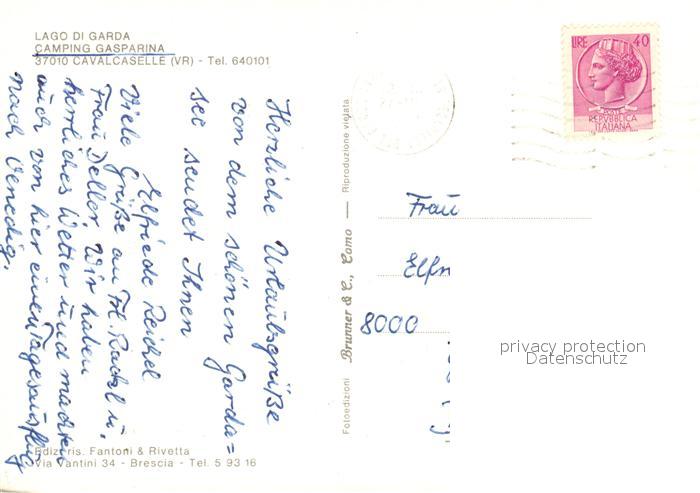 LAGO DI GARDA
CAMPING GASPARINA
37010 CAVALCASELLE (VR) - Tel. 640101
Herzliche Urlaubsgrüße
von dem schönen Garda=
see sendet Ihnen
Elfriede Reichel
Viele Grüße an Frl. Rachl u.
Frau Deller. Wir haben
herrliches Wetter und machten
auch von hier einen Tagesausflug
nach Venedig.
Ediz. ris. Fantoni & Rivetta
Via Vantini 34 - Brescia - Tel. 5 93 16
Fotoedizioni Brunner & C., Como — Riproduzione vietata
LIRE 40
POSTE
REPVBBLICA
ITALIANA
Frau
Elfr
8000
privacy protection
Datenschutz